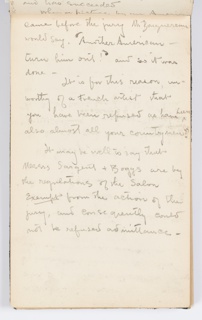 and was succeeded
came before the jury Mr
would say: "Another American -
turn him out!" and so it was
done -
It is for this reason,
that
you have been refused
also almost all your countrymen
It may be well to say that
Messrs Sargent & Boggs are by
the regulations of the Salon
exempt from the action of the
jury, and consequently could
not be refused admittance -